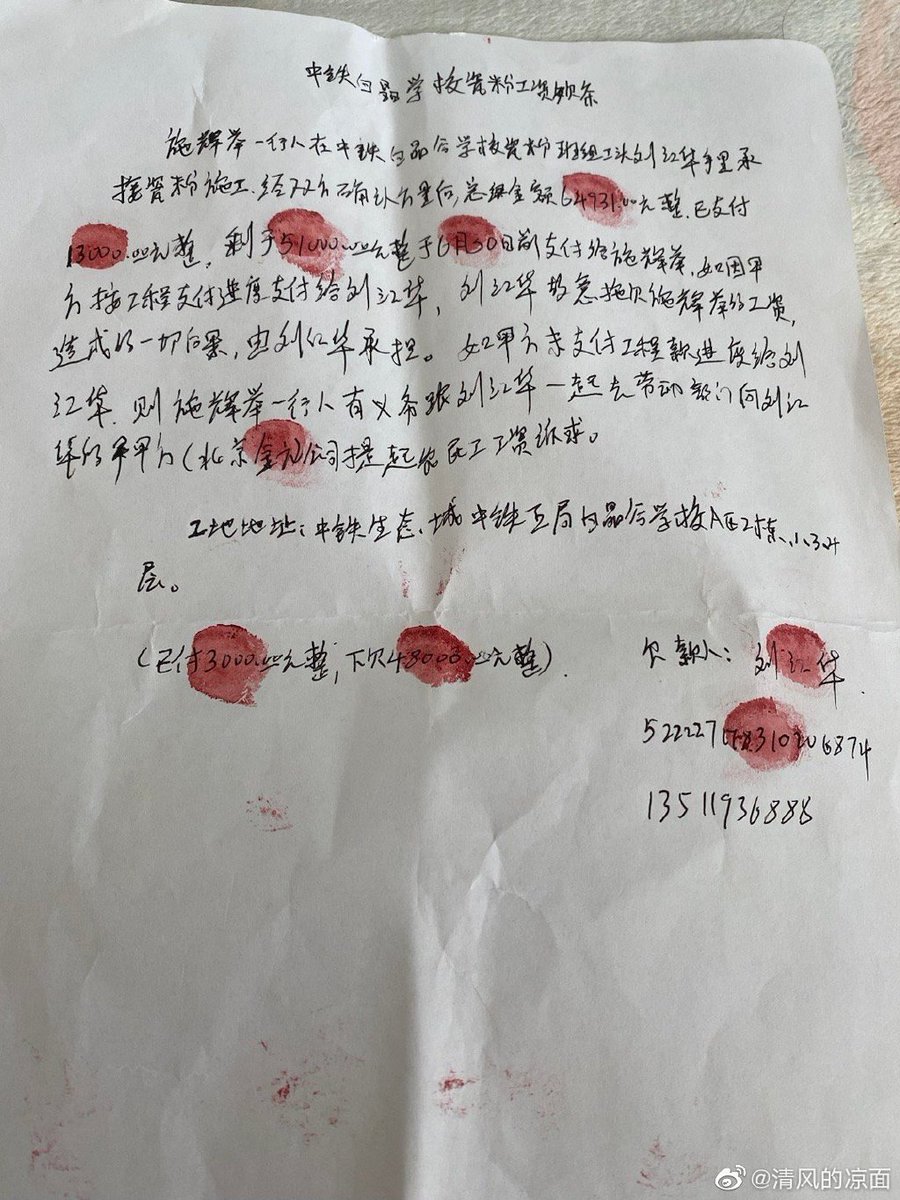 中铁白晶学校瓷粉工资欠条
施辉举一行人在中铁白晶谷学校瓷粉班组工头刘江华手里承
接瓷粉施工.经双方确认方量后,总组金额64931.00元整.已支付
13000.00元整,剩于51000.00元整于6月30日前支付给施辉举,如因甲
方按工程支付进度支付给刘江华,刘江华故意拖欠施辉举的工资,
造成的一切后果,由刘江华承担。如甲方未支付工程款进度给刘
江华.则施辉举一行人有义务跟刘江华一起去劳动部门向刘江
华的甲方(北京金 公司提起农民工工资诉求。
工地地址:中铁生态城中铁五局白晶谷学校A区2栋
层。
(已付3000.00元整,下欠48000.00元整)
欠款人:刘江华.
13511936888
@清风的凉面